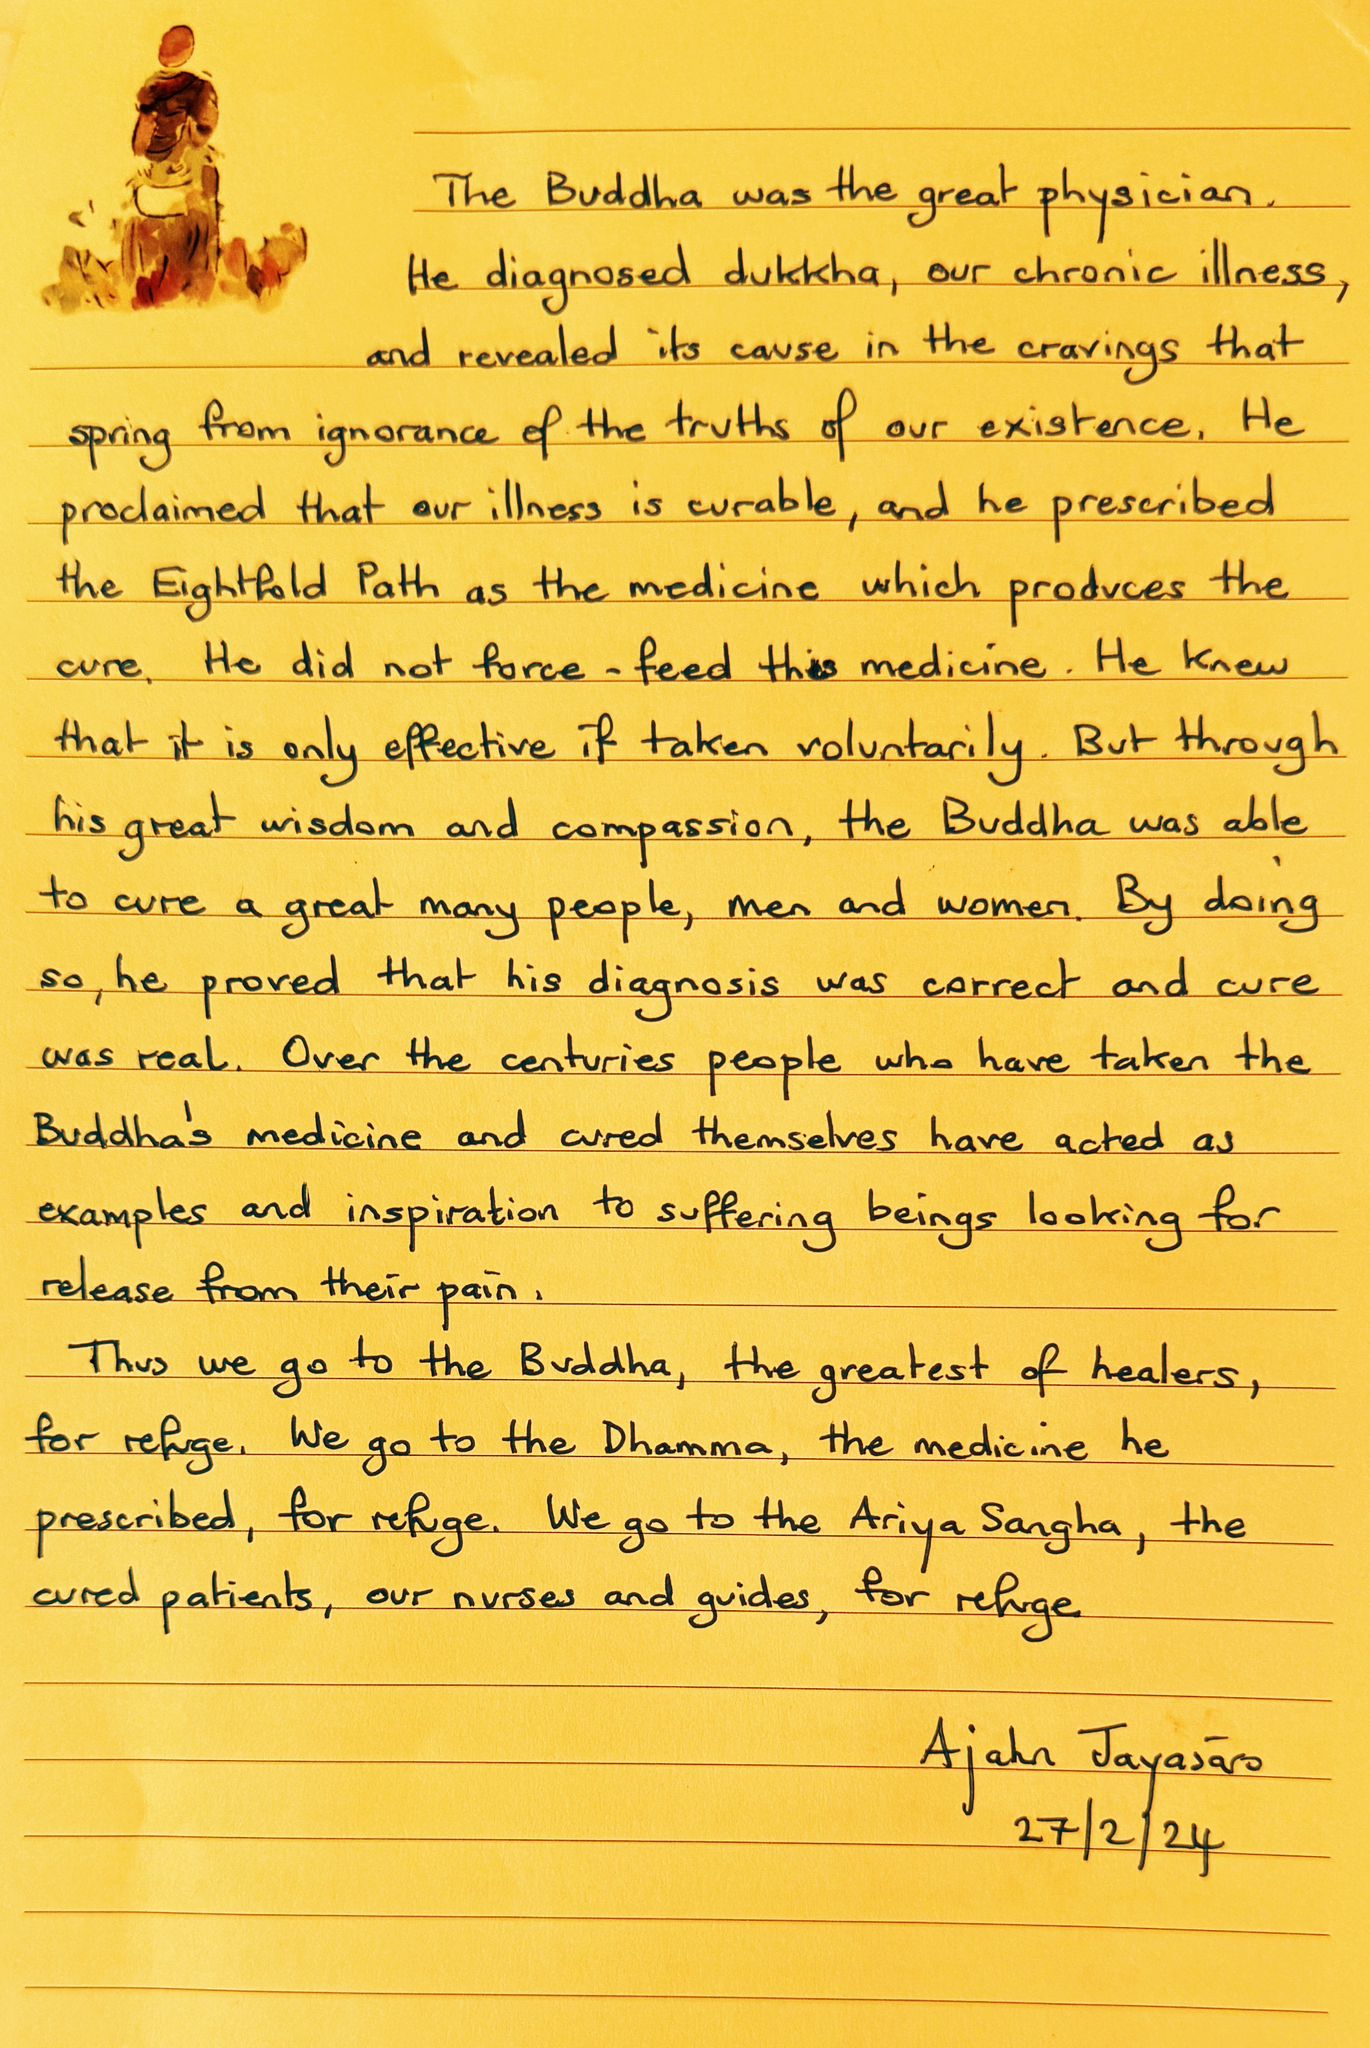 The Buddha was the great physician.
He diagnosed dukkha, our chronic illness,
and revealed its cause in the cravings that
spring from ignorance of the truths of our existence. He
proclaimed that our illness is curable, and he prescribed
the Eightfold Path as the medicine which produces the
cure. He did not force-feed this medicine. He knew
that it is only effective if taken voluntarily. But through
his great wisdom and compassion, the Buddha was able
to cure a great many people, men and women. By doing
so, he proved that his diagnosis was correct and cure
was real. Over the centuries people who have taken the
Buddha's medicine and cured themselves have acted as
examples and inspiration to suffering beings looking for
release from their pain.
Thus we go to the Buddha, the greatest of healers,
for refuge. We go to the Dhamma, the medicine he
prescribed, for refuge. We go to the Ariya Sangha, the
cured patients, our nurses and guides, for refuge
Ajahn Jayasāro
27/2/24